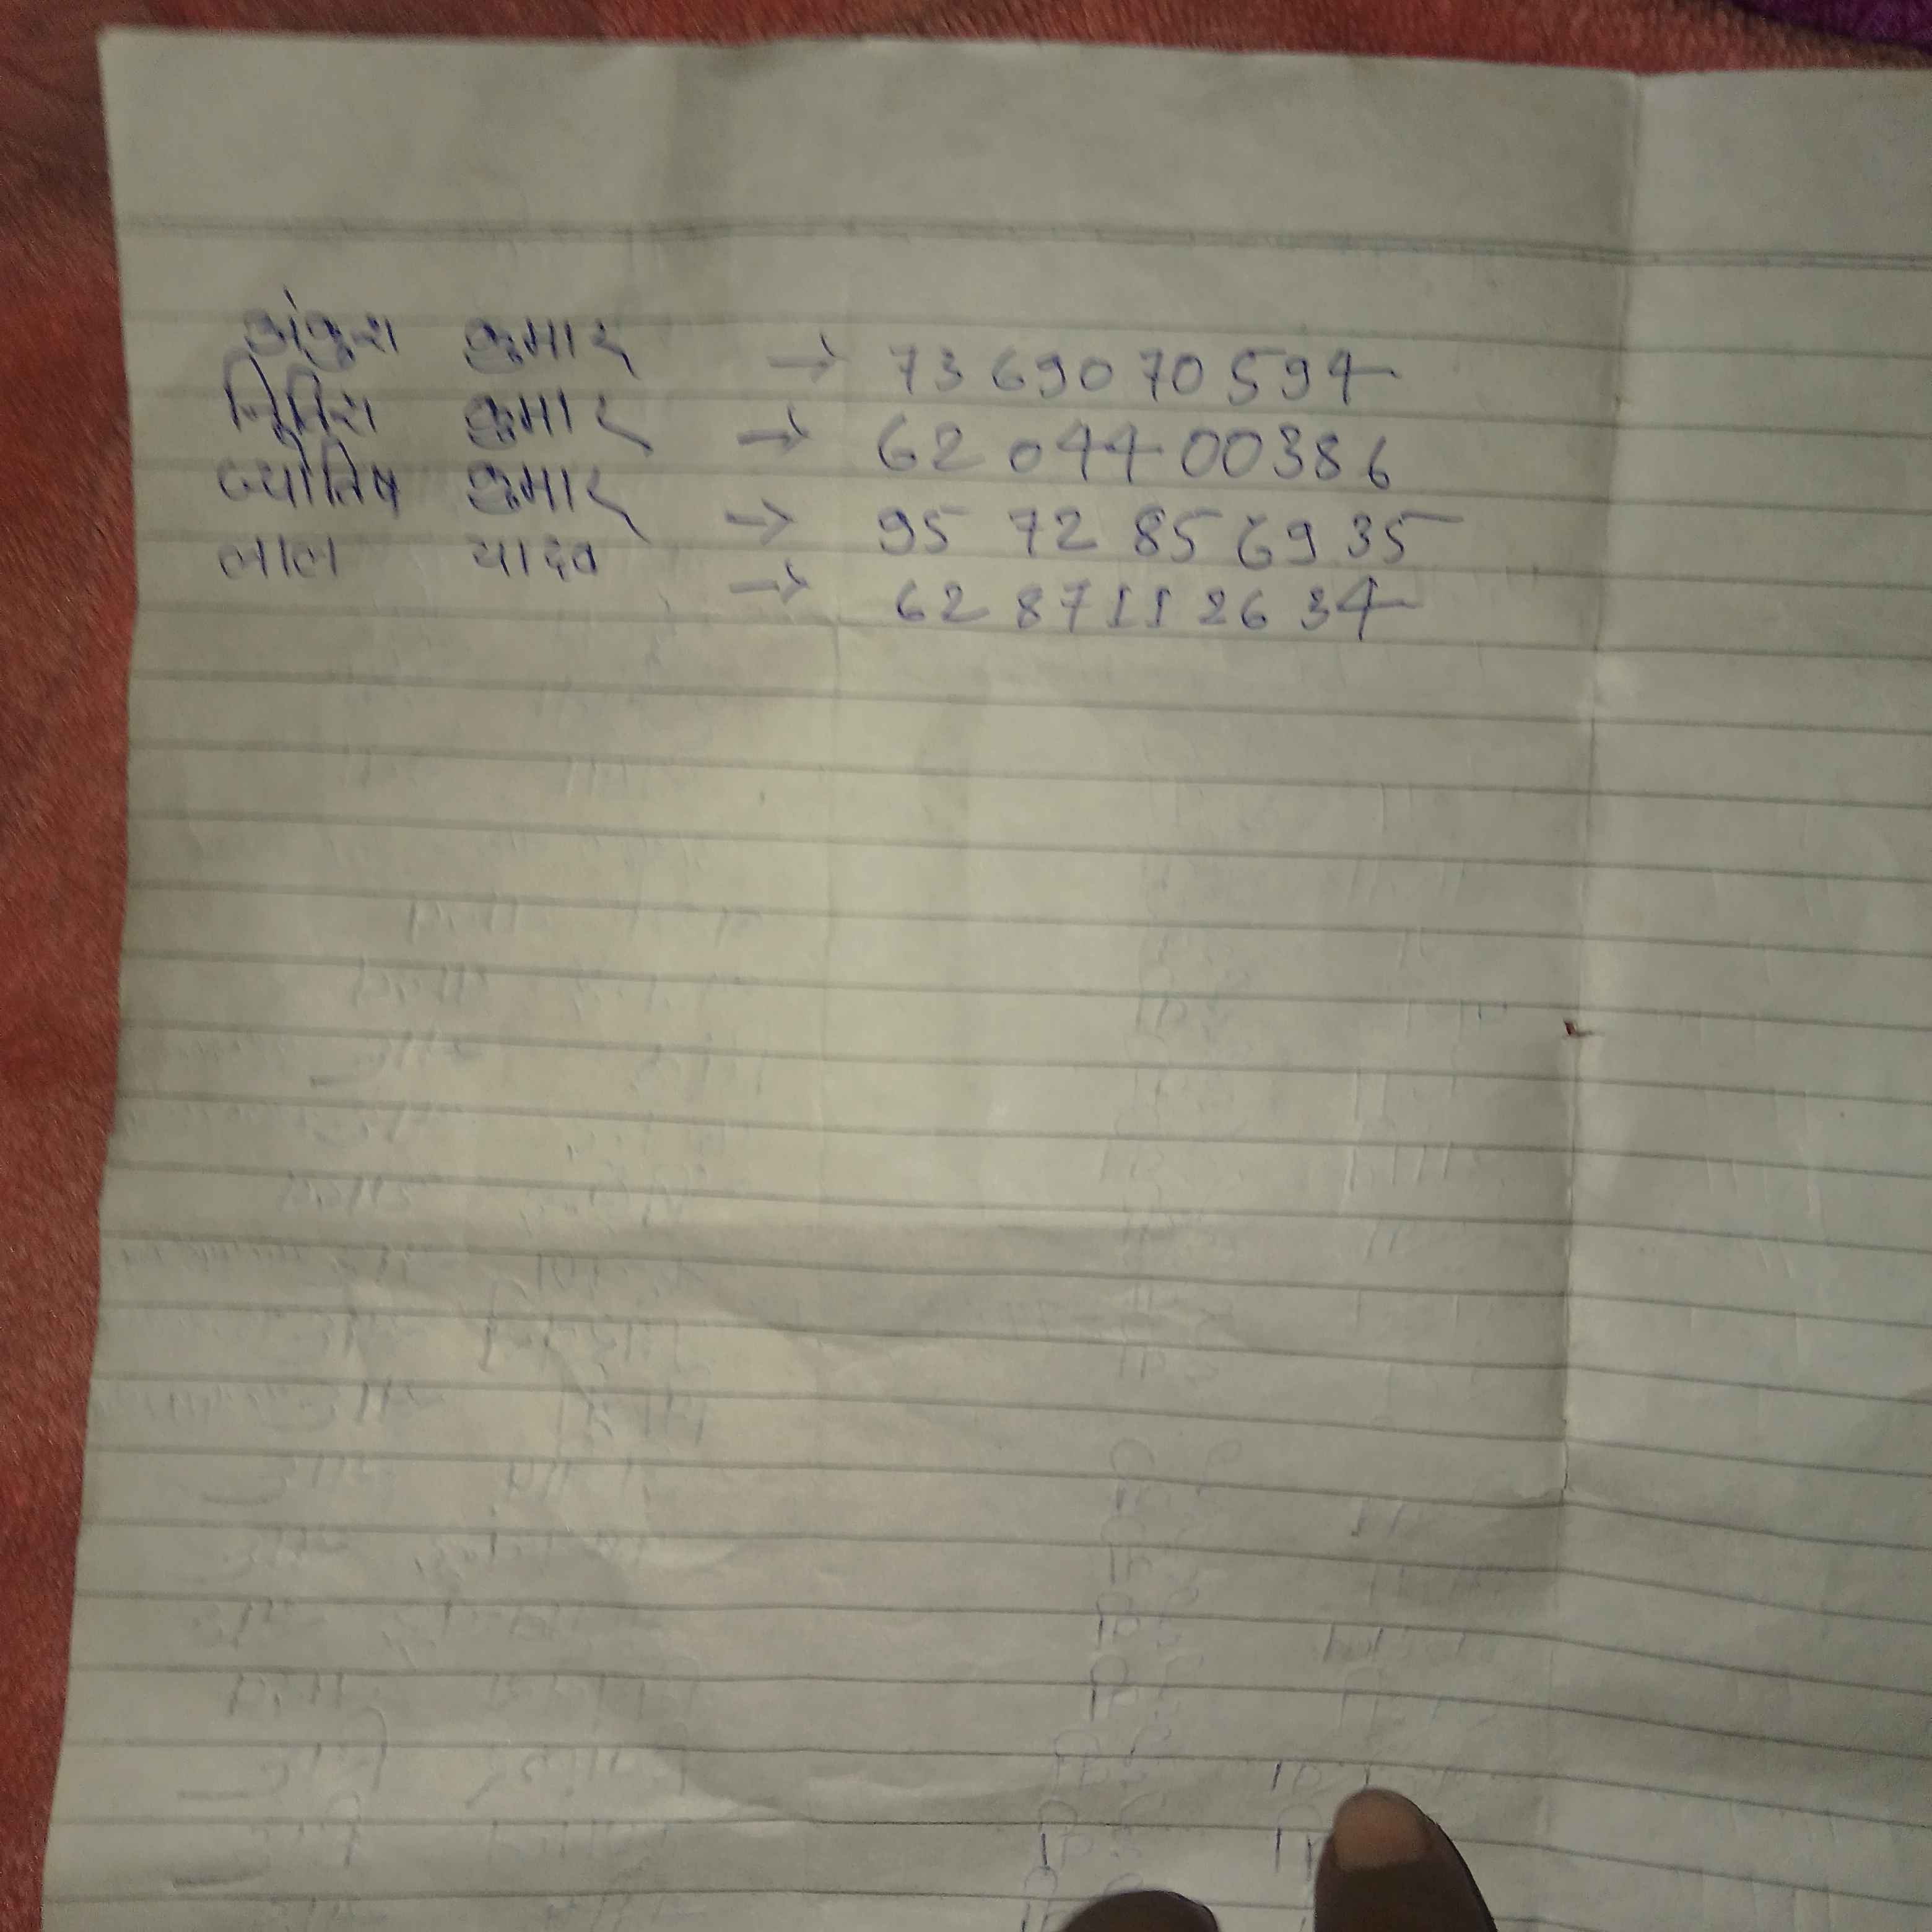 अंकुश कुमार → 7369070594
नितिश कुमार → 6204400386
ज्योतिष कुमार → 9572856935
लाल यादव → 6287112634